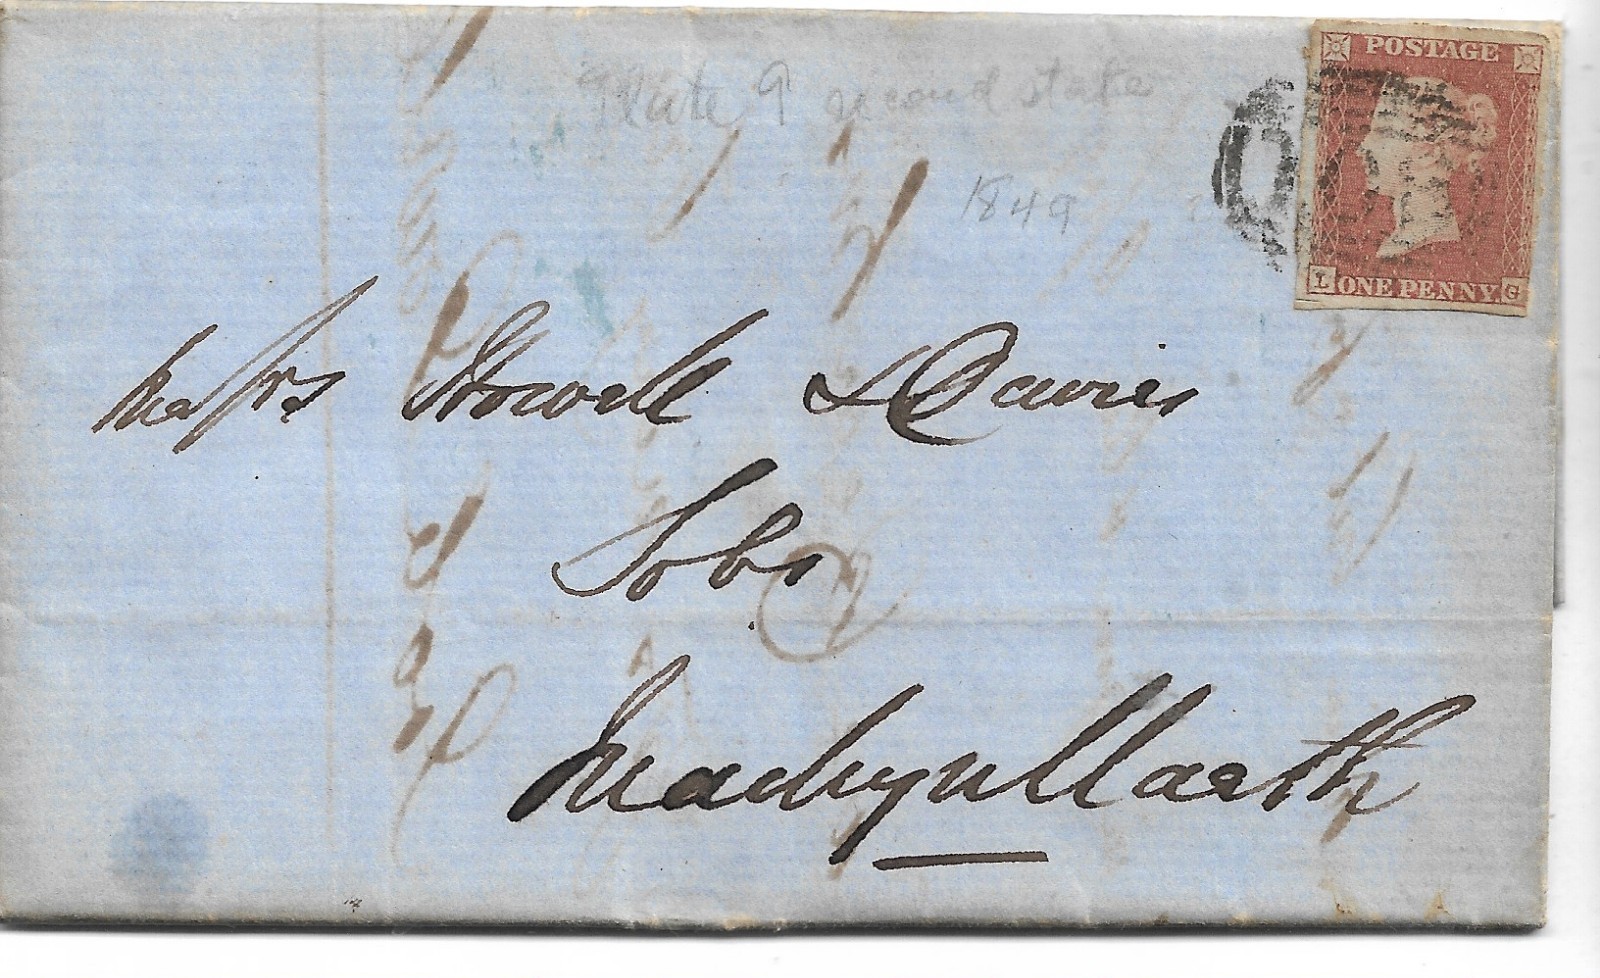 Plate 9 second state
1849
POSTAGE
L ONE PENNY. G
Messrs Howell & Davies
Sobs
Machynllaeth